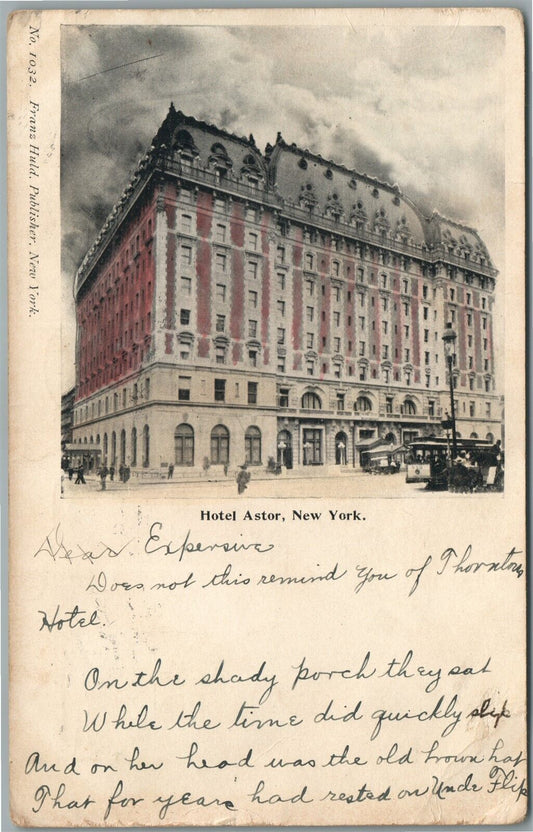 No. 1032. Franz Huld, Publisher, New York.
Hotel Astor, New York.
Dear Expensive
Does not this remind You of Thorntons
Hotel.
On the shady porch they sat
While the time did quickly slip
And on her head was the old brown hat
That for years had rested on Uncle Flip